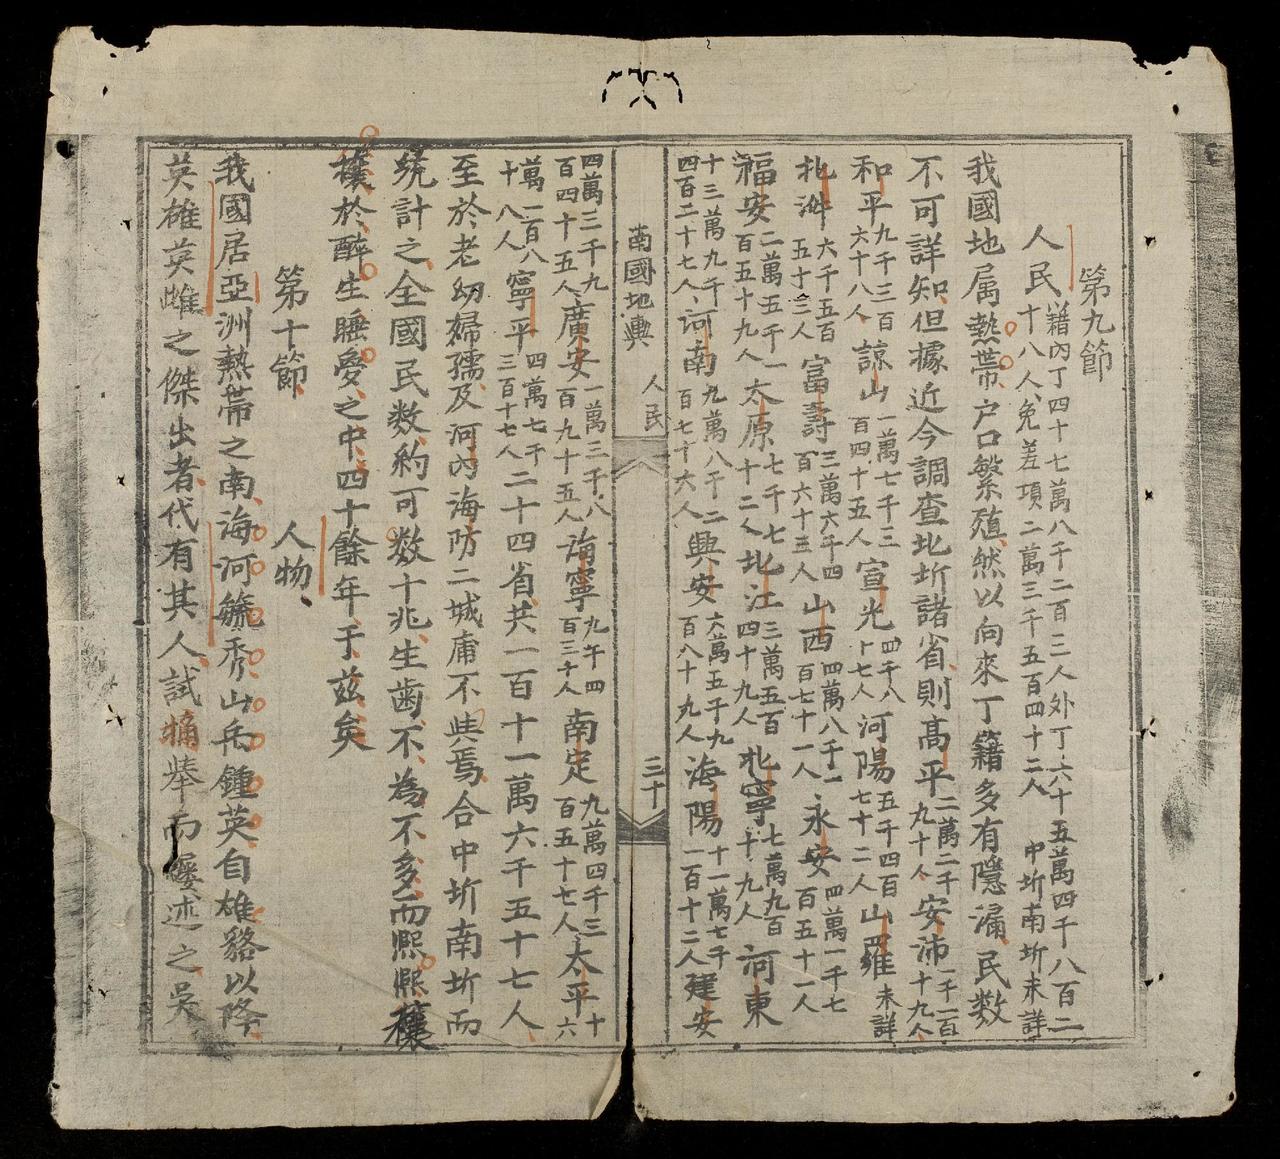 第九節
人民籍內丁四十七萬八千二百三人外丁六十五萬四千八百二十八人免差項二萬三千五百四十二人 中圻南圻未詳
我國地属熱帯户口繁殖然以向來丁籍多有隱漏民数
不可詳知但據近今調查北圻諸省則髙平二萬二千九十人安沛一千一百十九人
和平九千三百六十八人諒山一萬七千三百四十五人宣光四千八十七人河陽五千四百七十二人山羅未詳
北㳥六千五百五十三人富壽三萬六千四百六十三人山西四萬八千一百七十一人永安四萬一千七百五十一人
福安二萬五千一百五十九人太原七千七十二人北江三萬五百四十九人北寧七萬九百十九人河東
十三萬九千四百二十七人河南九萬八千二百七十六人興安六萬五千九百八十九人海陽十一萬七千一百十二人建安
南國地輿 人民 三十
四萬三千九百四十五人廣安一萬三千八百九十五人海寧九千四百三十人南定九萬四千三百五十七人太平十六
萬一百八十八人寧平四萬七千三百十七人二十四省共一百十一萬六千五十七人
至於老幼婦孺及河內海防二城庸不與焉合中圻南圻而
統計之全國民数約可数十兆生齒不為不多而熙熙穰
穰於醉生睡夢之中四十餘年于兹矣
第十節 人物
我國居亞洲熱帯之南海河毓秀山岳鍾英自雄貉以降
英雄英雌之傑出者代有其人試摘舉而屢述之吳